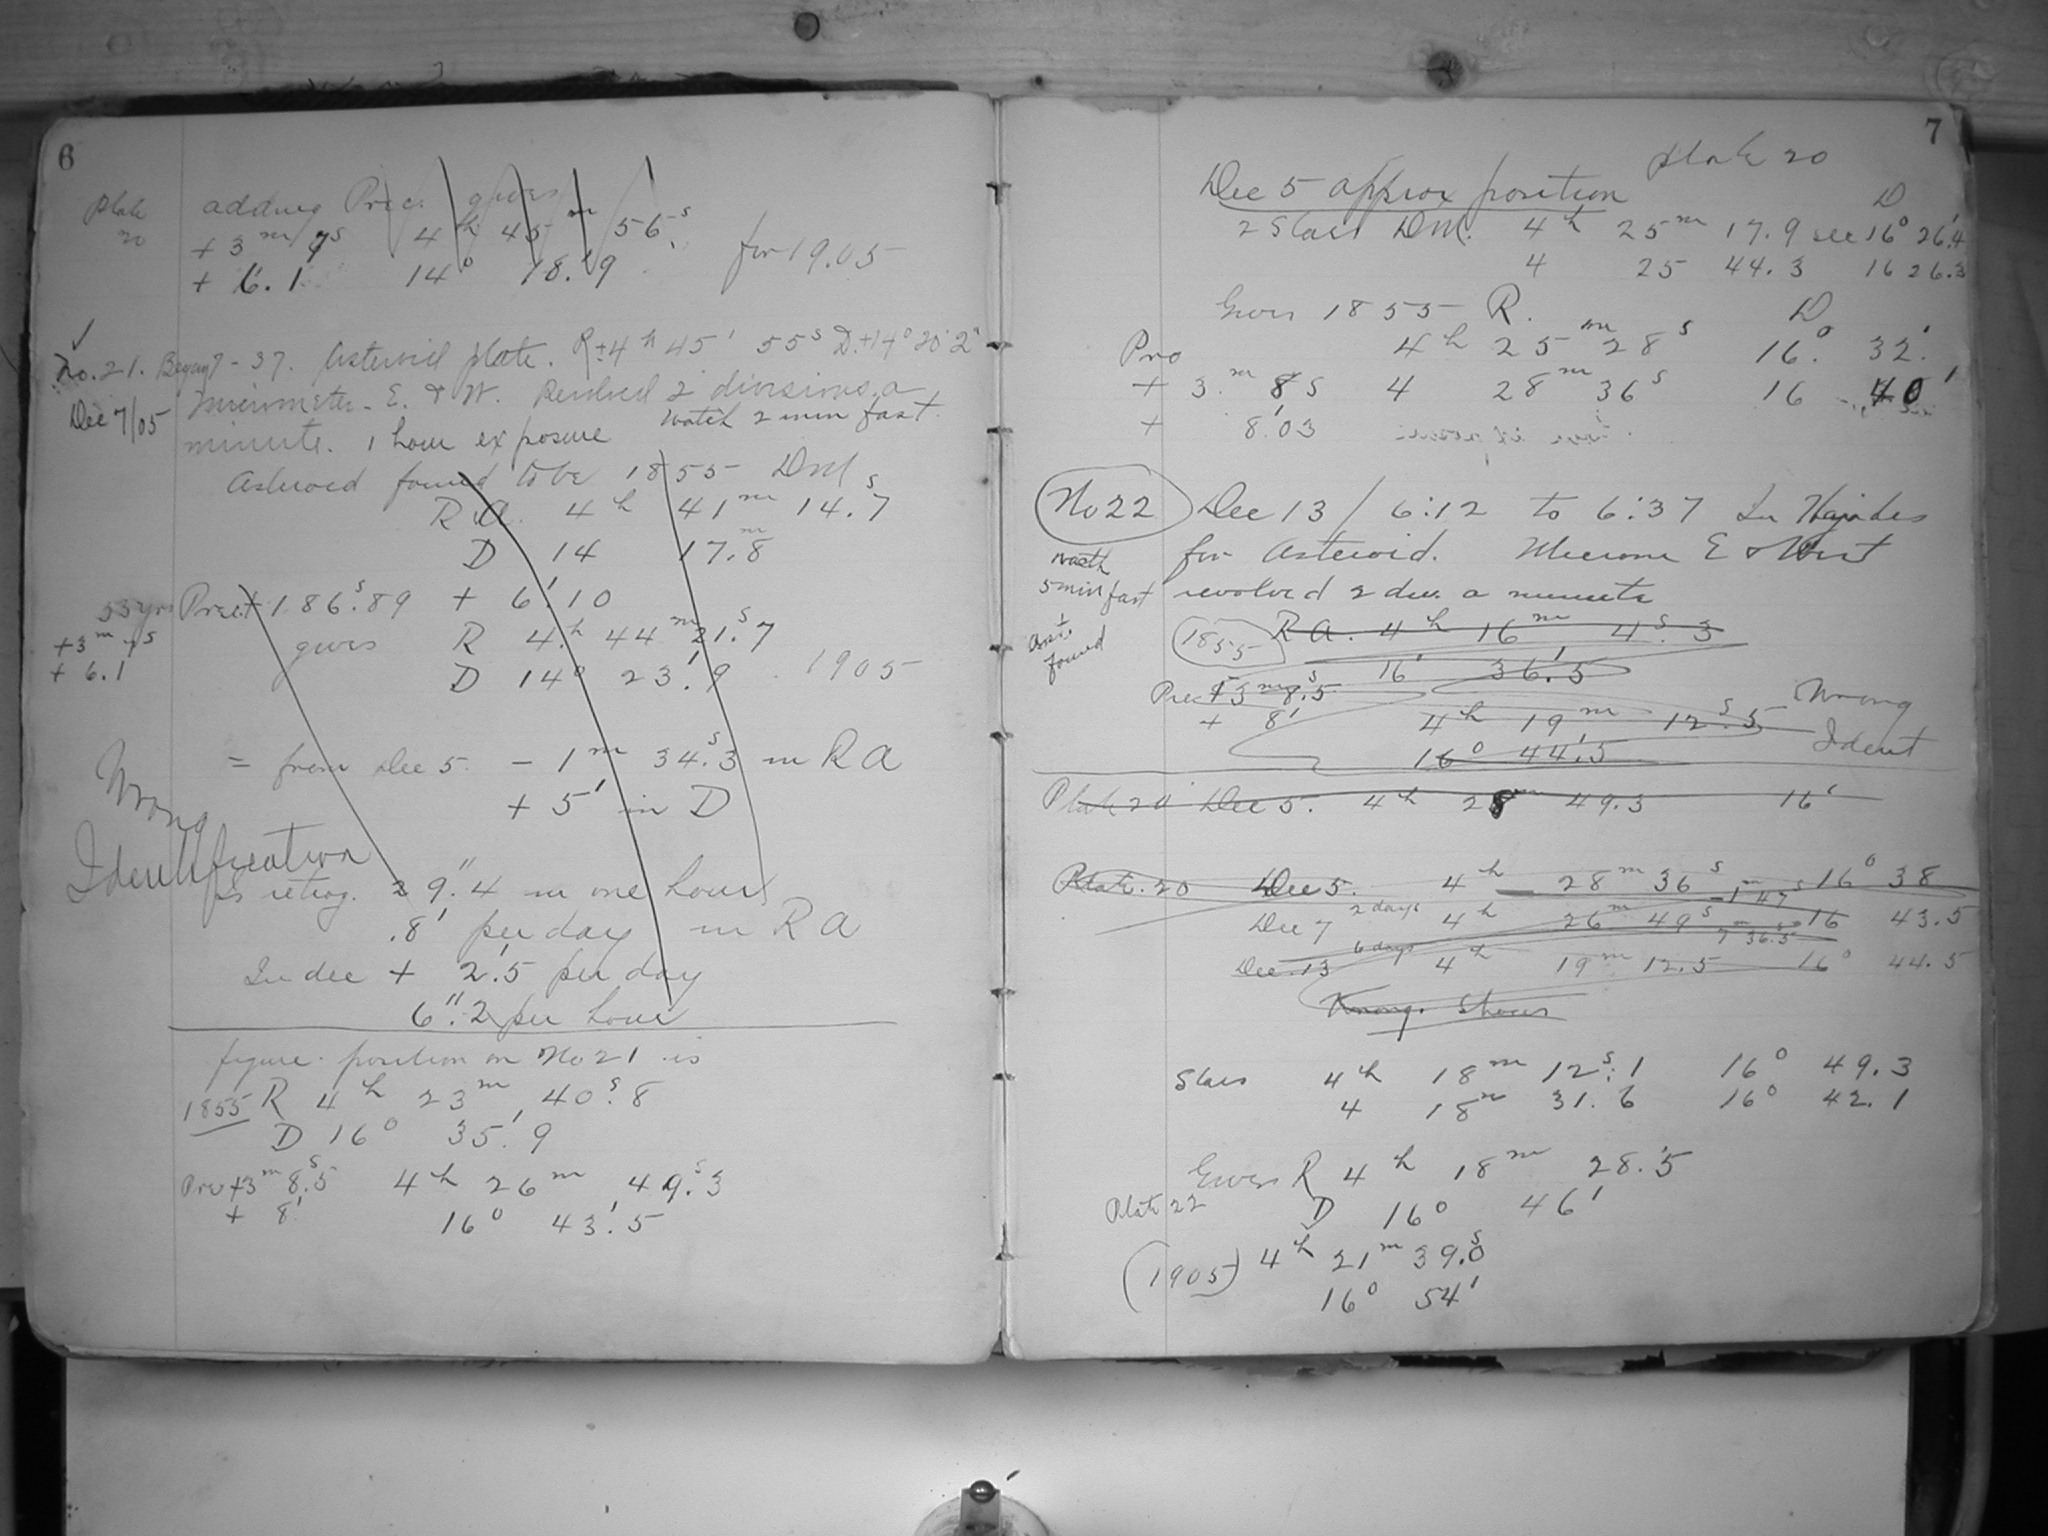 6
Plate 20
adding Prec. gives
+ 3m 7s 4h 45m 56s
+ 6.1 14° 18.'9 for 1905
No. 21. Began 7-37. Asteroid plate. R+4h 45' 55s D.+14° 20' 2"
Dec 7/05
Micrometer E. & W. Revolved 2 divisions a
minute. 1 hour exposure watch 2 min fast
Asteroid found to be 1855 DM
R.A. 4h 41m 14.s7
D 14 17.m8
53 yrs Prec + 186.s89 + 6.'10
+3m 7s
+ 6.1
gives R 4h 44m 21.s7
D 14° 23.'9 1905
= from Dec 5. - 1m 34.s3 in R A
+ 5' in D
Wrong
Identification
Is retrog. 29."4 in one hour
.8' per day in R A
In dec + 2.'5 per day
6."2 per hour
figure position on No 21 is
1855 R 4h 23m 40.s8
D 16° 35.'9
Pre +3m 8.s5 4h 26m 49.s3
+ 8' 16° 43.'5
7
plate 20
Dec 5 approx position
D
2 Stars DM. 4h 25m 17.9 sec 16° 26.'4
4 25 44.3 16 26.3
Gives 1855 R. D
4h 25m 28s 16.° 32.'
Pre
+ 3.m 8s 4 28m 36s 16 40'
+ 8.'03
No 22 Dec 13 / 6:12 to 6:37 In Hyades
for Asteroid. Microm E & West
watch
5 min fast
revolved 2 div. a minute
Ast.
found
1855 R A. 4h 16m 4.s3
16 36.'5
Prec +3m 8.s5
+ 8' 4h 19m 12.s5 Wrong
16° 44.'5 Ident
Plate 20 Dec 5. 4h 28m 49.3 16'
Plate. 20 Dec 5. 4h 28m 36s 16° 38
-1m 47s
Dec 7 2 days 4h 26m 49s 16 43.5
7m 36.s5
Dec. 13 6 days 4h 19m 12.5 16° 44.5
Wrong. Stars
Stars 4h 18m 12.s1 16° 49.3
4 18m 31.6 16° 42.1
Gives R 4h 18m 28.s5
Plate 22 D 16° 46'
(1905) 4h 21m 39.s0
16° 54'